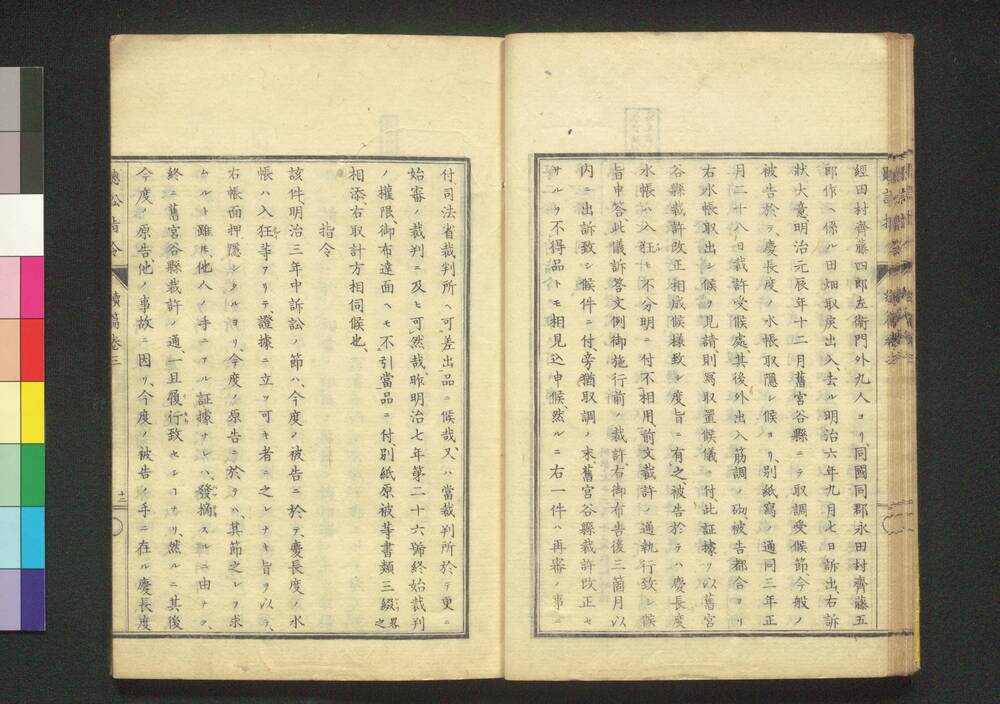 經田村齊藤四郎左衞門外九人ヨリ、同國同郡永田村齊藤五
郎作ヘ係ル田畑取戾出入、去ル明治六年九月七日訴出、右訴
狀大意、明治元辰年十二月舊宮谷縣ニテ取調受候節今般ノ
被告於テ、慶長度ノ水帳取隱シ候ヨリ、別紙寫ノ通同三年正
月二十八日裁許受候處其後外出入筋調ノ砌被告都合ヨリ
右水帳取出シ候ヲ見請則寫取置候儀ニ付、此証據ヲ以舊宮
谷縣裁許改正相成候樣致シ度旨ニ有之、被告於テハ慶長度
水帳ハ入狂ヒモ不分明ニ付不相用、前文裁許ノ通執行致シ候
旨申答此儀訴答文例御施行前ノ裁許、右御布告後三箇月以
內ニ出訴致シ候件ニ付、旁猶取調ノ末舊宮谷縣裁許改正セ
サルヲ不得品トモ相見込申候、然ルニ右一件ハ再審ノ事ニ
付、司法省裁判所ヘ可差出品ニ候哉、又ハ當裁判所於テ更ニ
始審ノ裁判ニ及ヒ可然哉、昨明治七年第二十六號終始裁判
ノ權限、御布達面ヘモ不引當品ニ付、別紙原被等書類三綴略之
相添、右取計方相伺候也、
指令
該件、明治三年中訴訟ノ節ハ、今度ノ被告ニ於テ、慶長度ノ水
帳ハ入狂等アリテ證據ニ立ツ可キ者ニ之レナキ旨ヲ以テ、
右帳面押隱シタルヨリ、今度ノ原告ニ於テハ、其節之レヲ求
ムルト雖𪜈、他人ノ手ニアル証據ナレハ、發摘スルニ由ナク、
終ニ舊宮谷縣裁許ノ通、一旦履行致セシコアリ、然ルニ其後
今度ノ原告他ノ事故ニ因リ、今度ノ被告ノ手ニ在ル慶長度
續篇卷三
十二